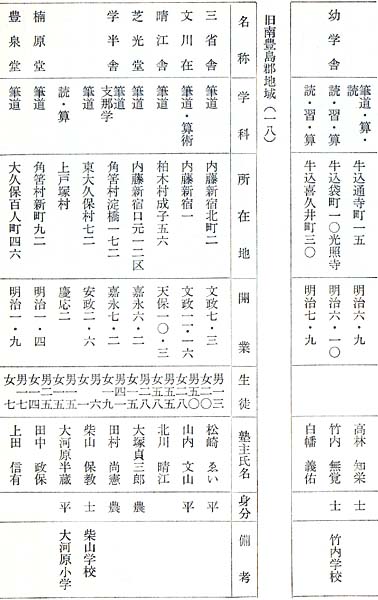 筆道・算・読 牛込通寺町一五 明治六・九 高林 知栄 士
幼学舎 読・習・算 牛込袋町一〇光照寺 明治六・一〇 竹内 無覚 士 竹内学校
読・習・算 牛込喜久井町三〇 明治七・九 白幡 義佑
旧南豊島郡地域（一八）
名称 学科 所在地 開業 生徒 塾主氏名 身分 備考
三省舎 筆道 内藤新宿北町二 文政七・三 男 女 松崎 ゑい
文川在 筆道・算術 内藤新宿一 男 女 山内 文山 平
晴江舎 筆道 柏木村成子五六 天保一〇・三 男 女 北川 晴江
芝光堂 筆道 内藤新宿口元一二区 嘉永六・二 男 女 大塚貞三郎 農
学半舎 筆道 支那学 角筈村淀橋一七二 嘉永七・二 男 女 田村 尚憲 農
筆道 東大久保村七二 安政二・六 男 女 柴山 保教 士 柴山学校
読・算 上戸塚村 慶応二 男 女 大河原半蔵 平 大河原小学
楠原堂 筆道 角筈村新町九二 明治一・四 男 女 田中 政保
豊泉堂 筆道 大久保百人町四六 明治一・九 男 女 上田 信有